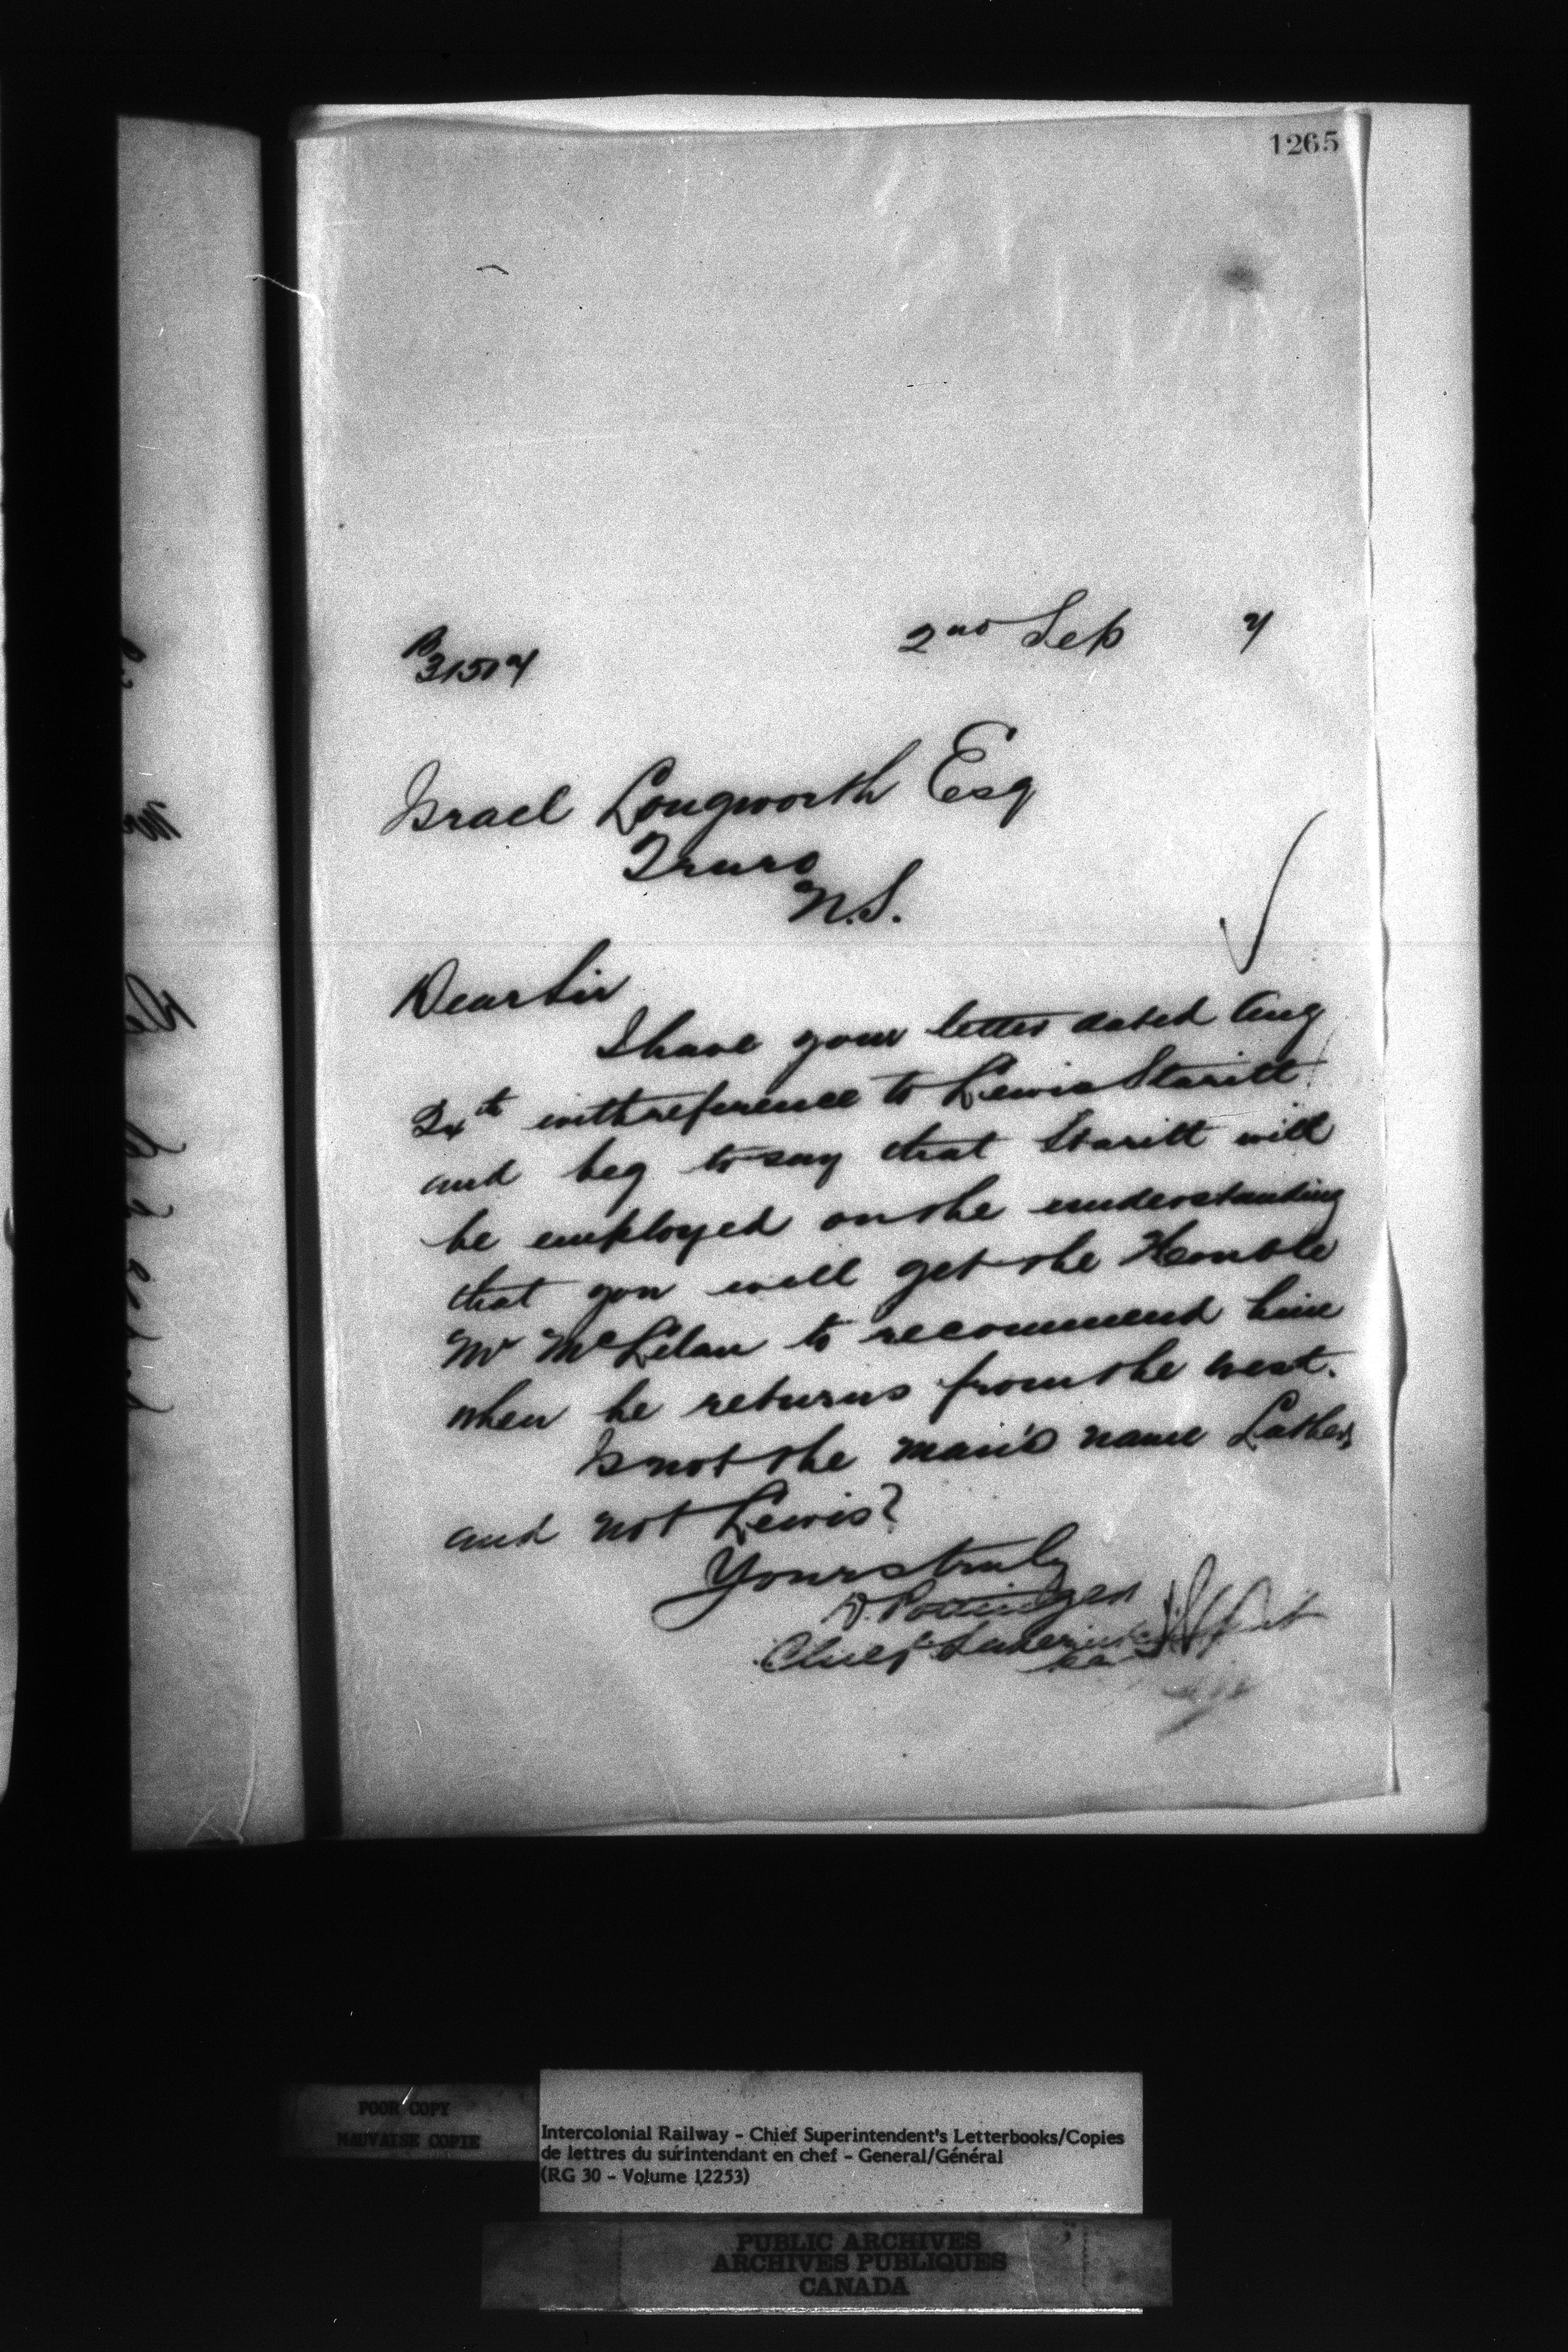 1265
2nd Sep 7
P
31507
Israel Longworth Esq
Truro
N.S.
Dear Sir
I have your letter dated Aug
24th with reference to Lewis Staritt
and beg to say that Staritt will
be employed on the understanding
that you will get the Honble
Mr McLelan to recommend him
when he returns from the west.
Is not the man's name Luther
and not Lewis?
Yours truly
D. Pottinger
Chief Superintendent
POOR COPY
MAUVAISE COPIE
Intercolonial Railway - Chief Superintendent's Letterbooks/Copies
de lettres du surintendant en chef - General/Général
(RG 30 - Volume 12253)
PUBLIC ARCHIVES
ARCHIVES PUBLIQUES
CANADA